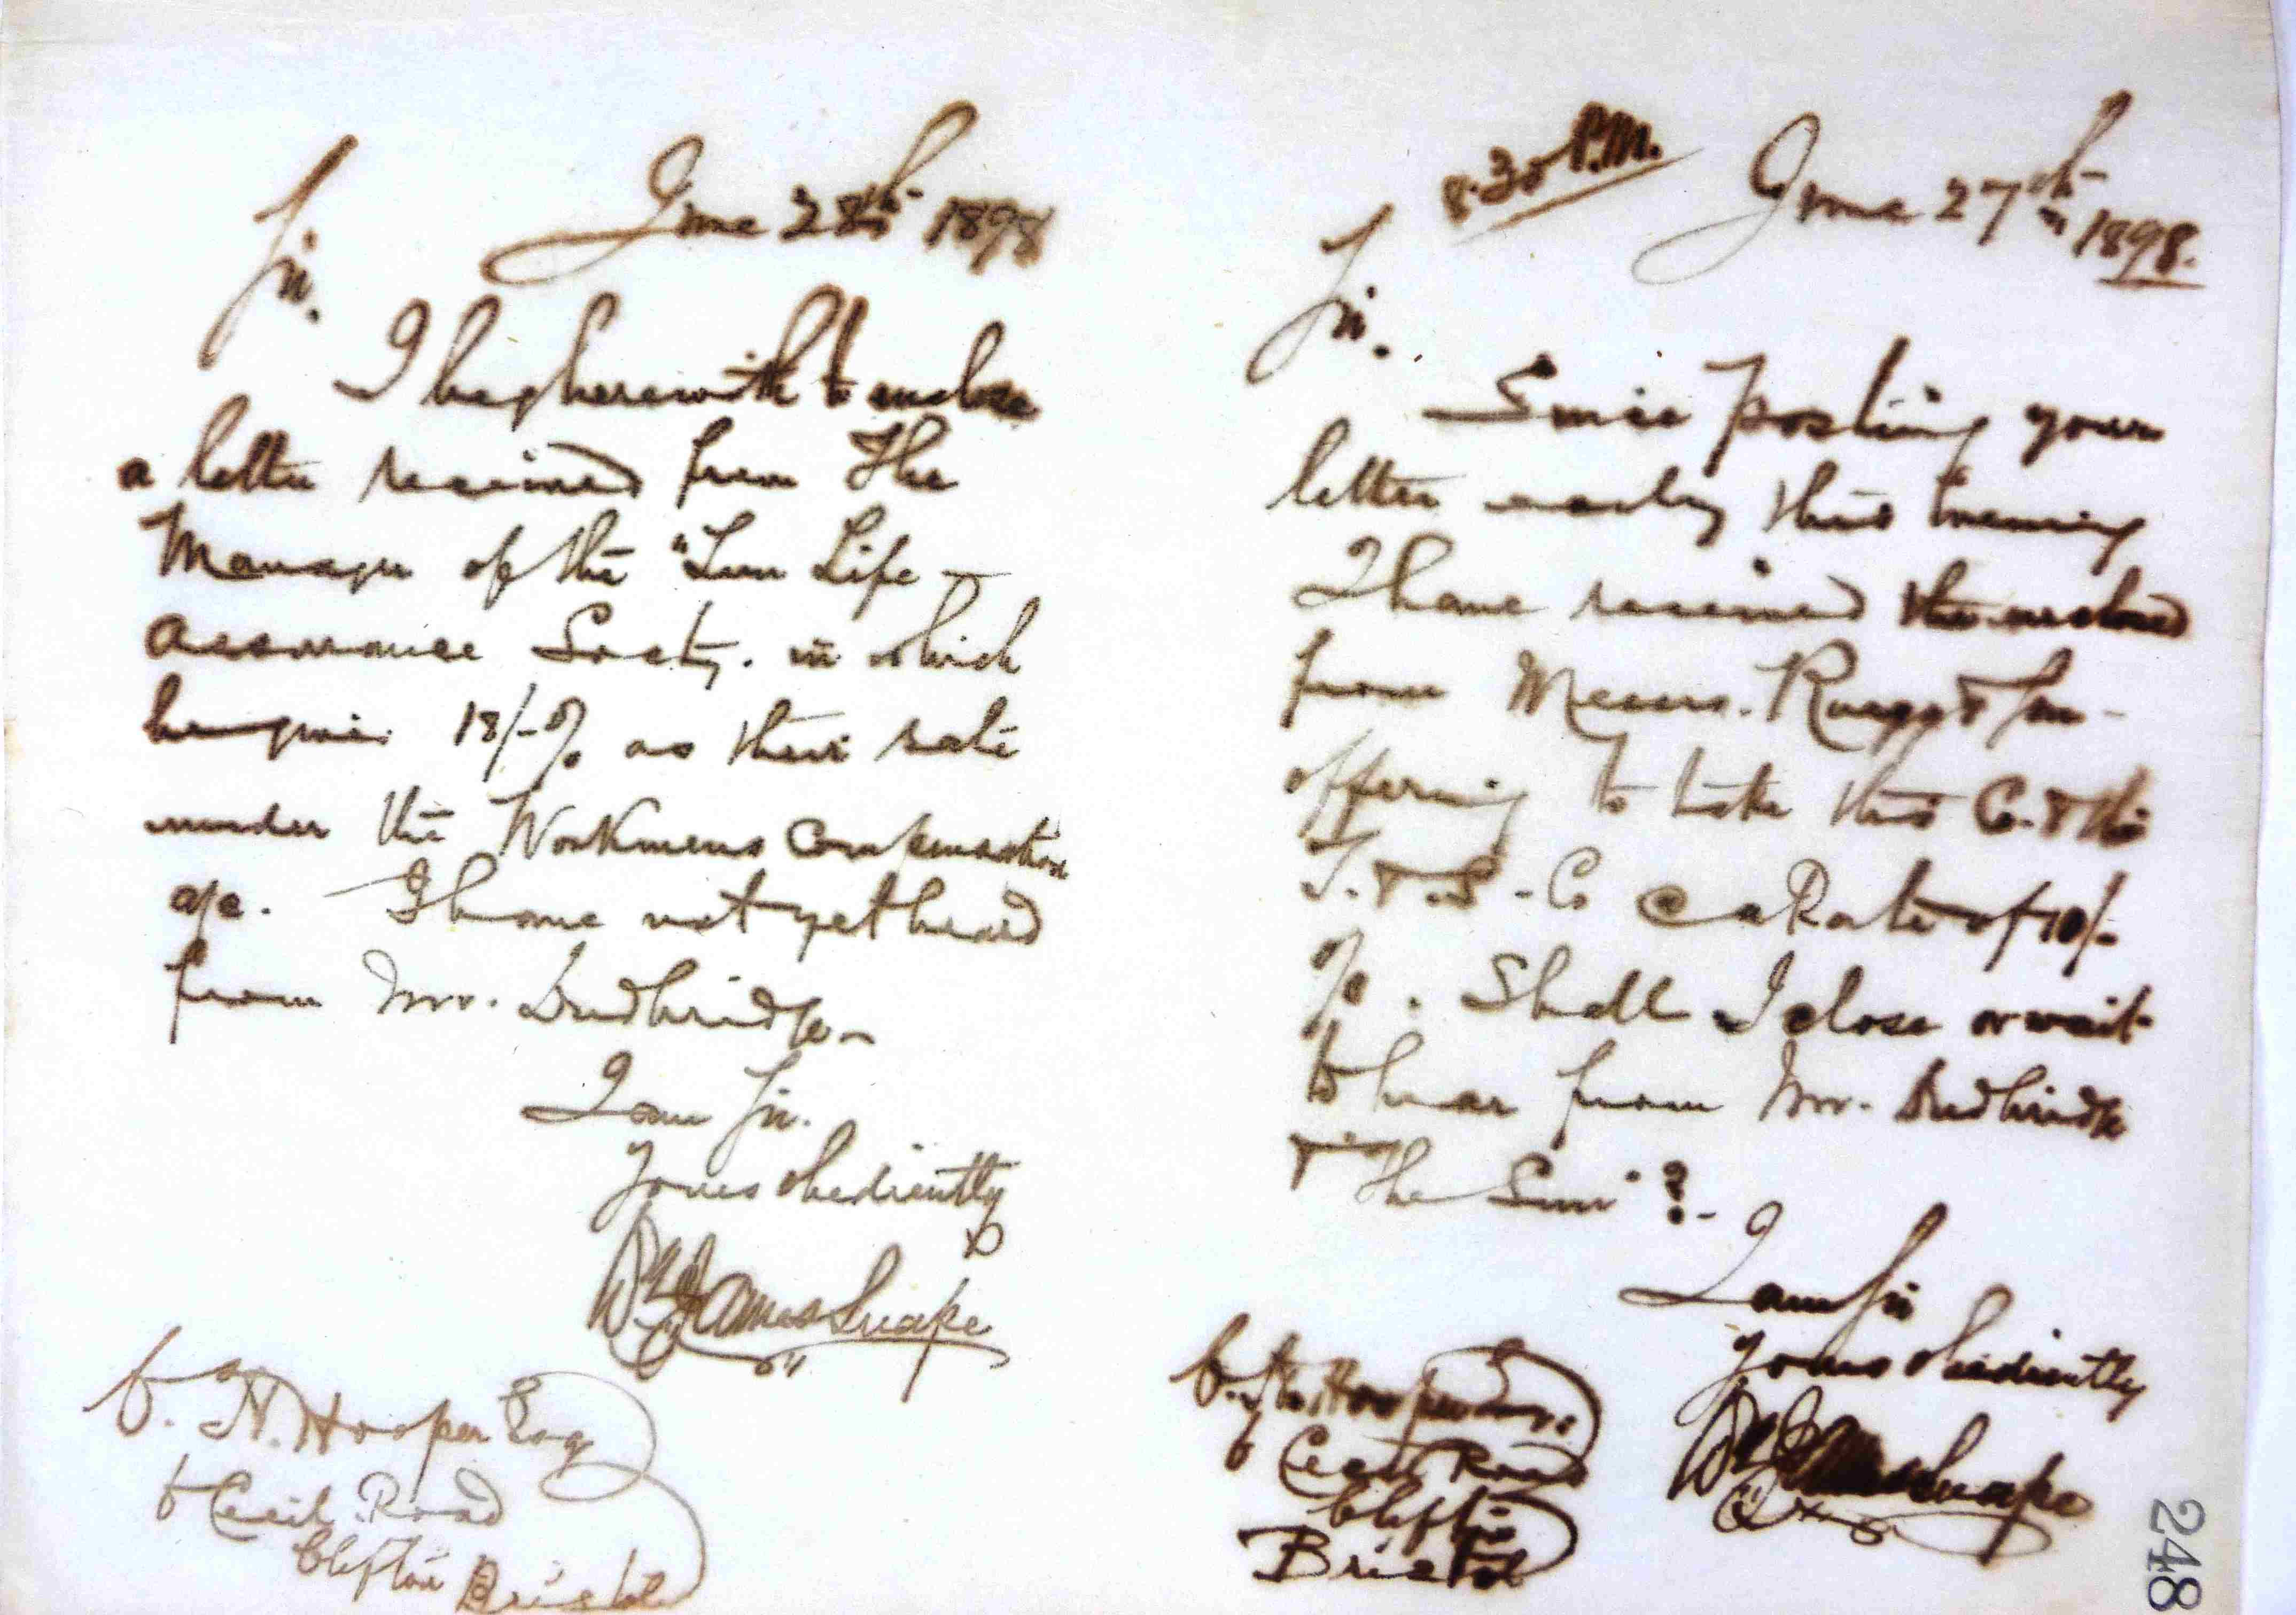 June 28th 1898
Sir.
I beg herewith to enclose
a letter received from the
Manager of the "Sun Life
Assurance Socty. in which
he gives 18/-% as their rate
under the Workmens Compensation
a/c. I have not yet heard
from Mr. Budbridge
I am Sir.
Yours obediently
Wm James Snape
C. N. Hooper Esq
6 Cecil Road
Clifton
Bristol
8.30 P.M. June 27th 1898.
Sir.
Since posting your
letter early this evening
I have received the enclosed
from Messrs.
offering to take this Co. & the
Co @ a Rate of 10/-
%. Shall I close or wait
to hear from Mr. Budbridge
& "The Sun"?
I am Sir
Yours obediently
Wm James Snape
Hooper
6 Cecil Road
Clifton
Bristol
248